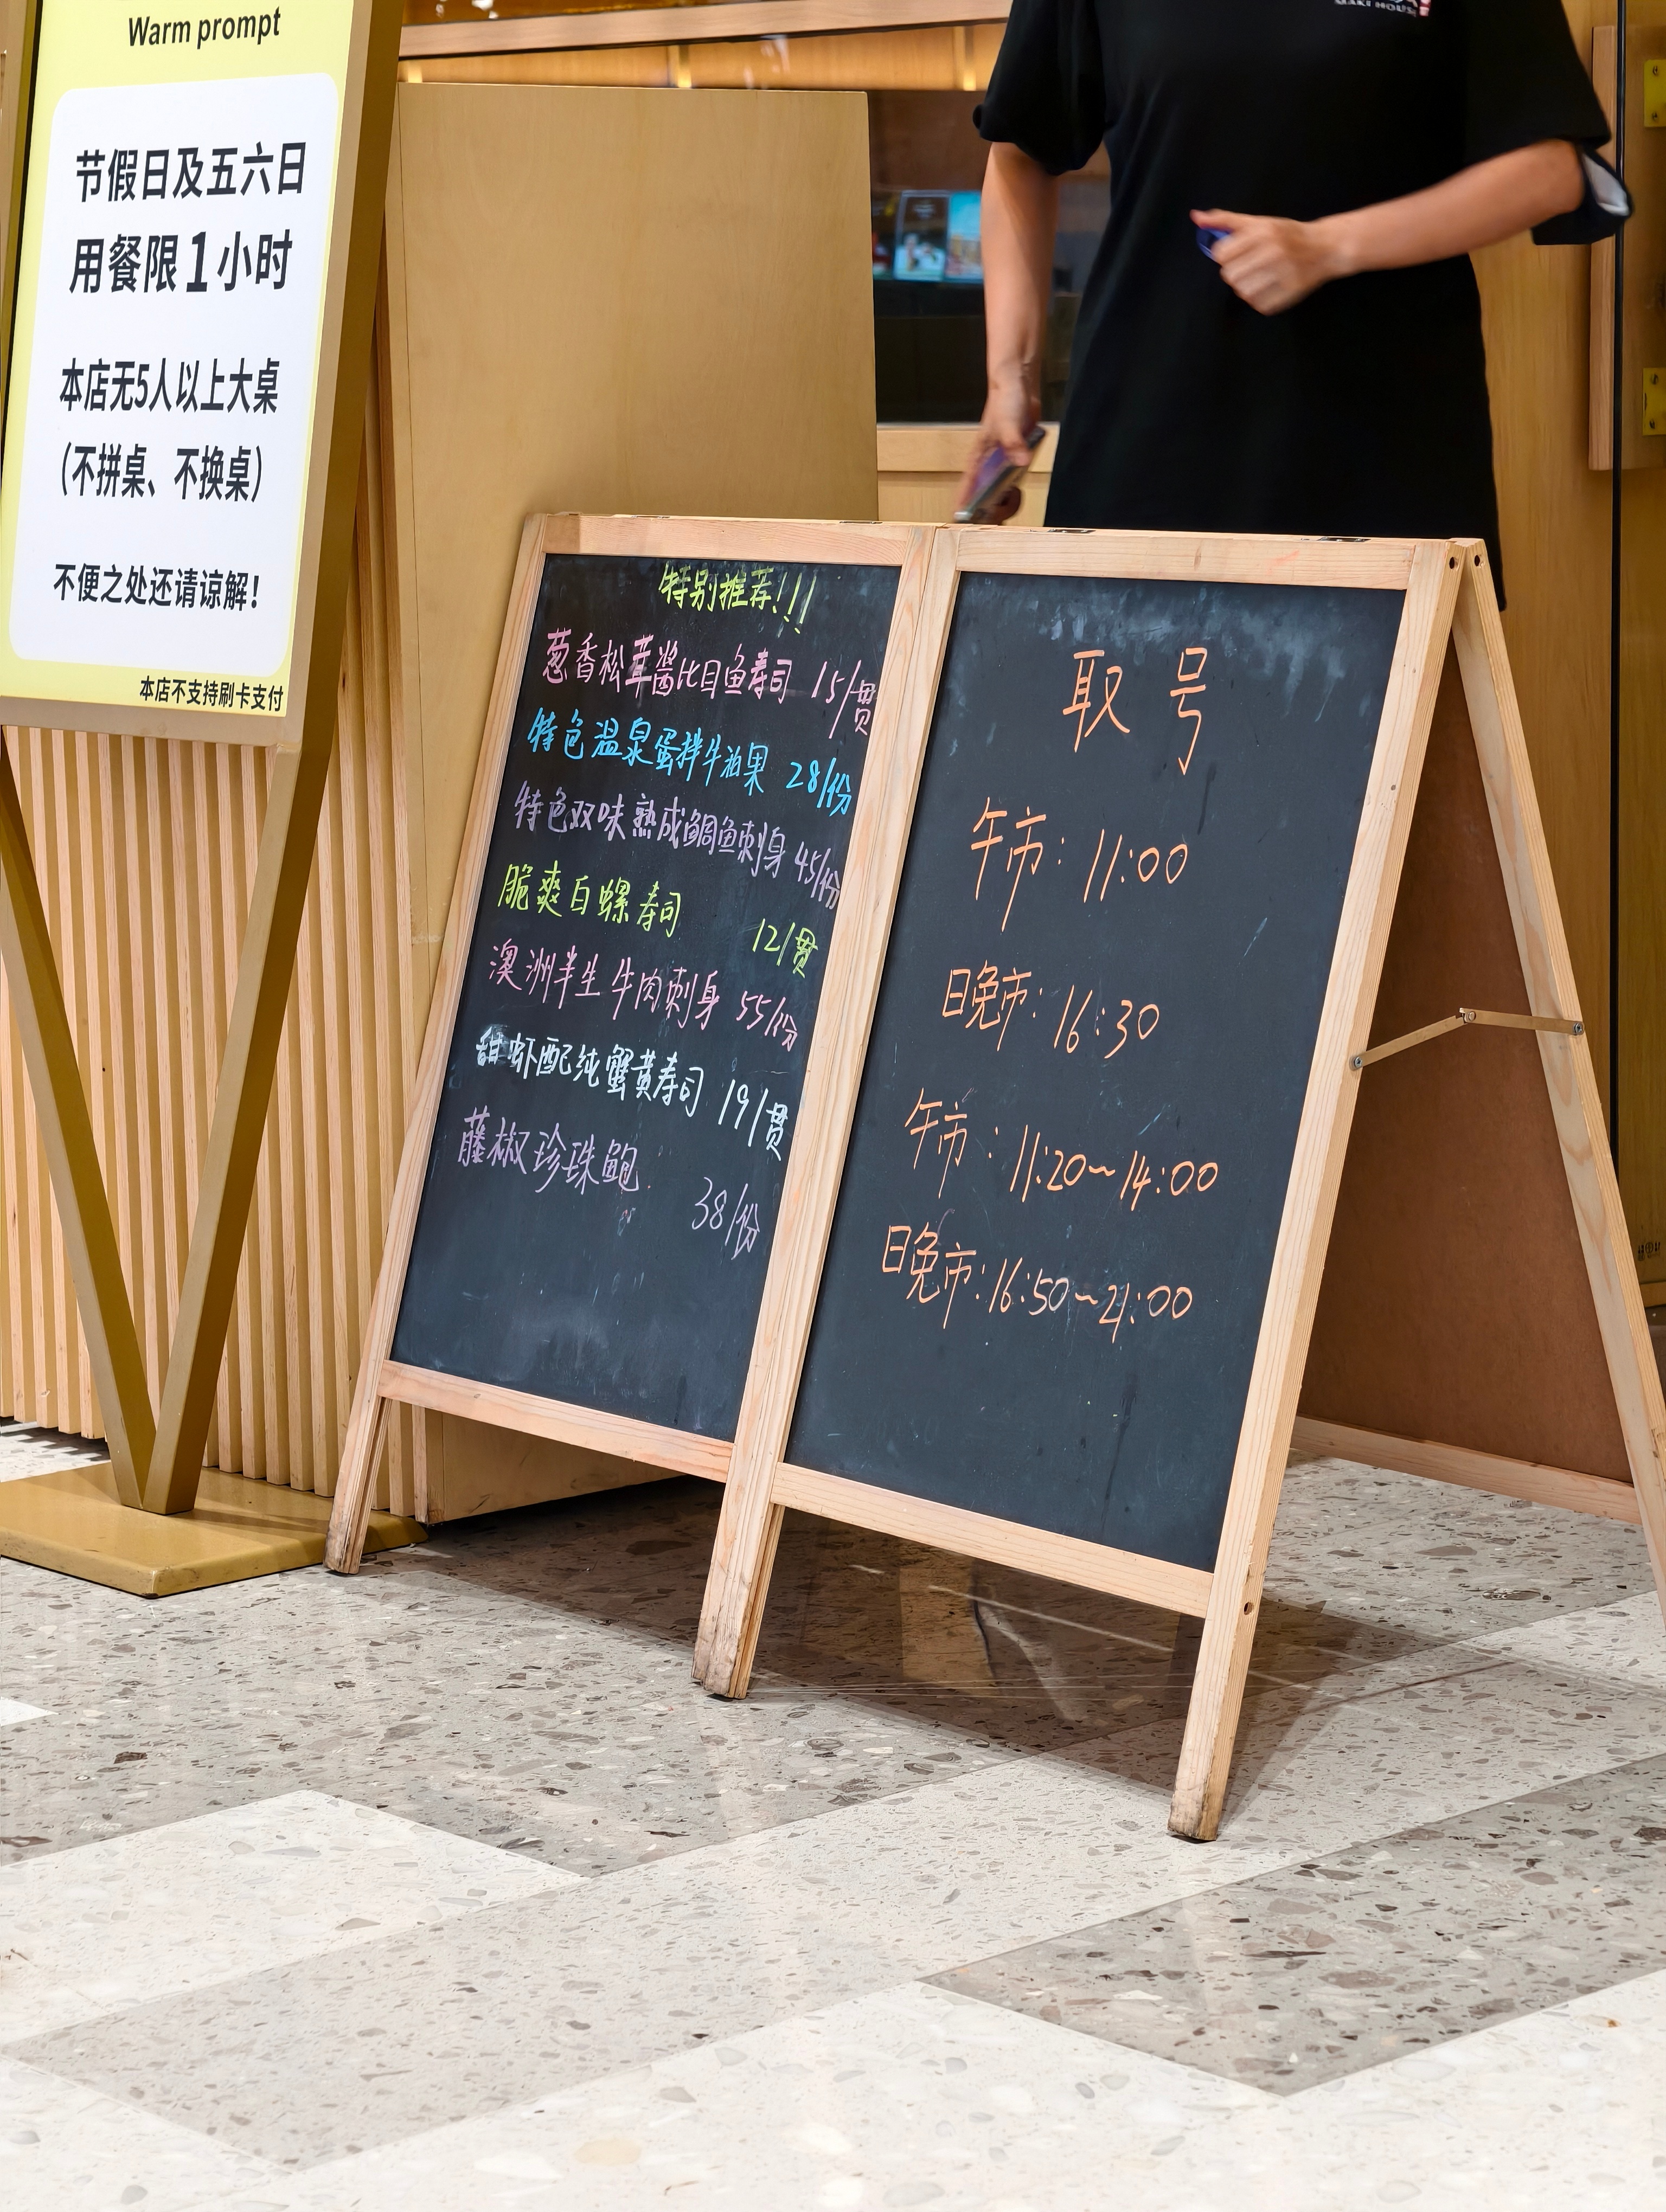 Warm prompt
节假日及五六日
用餐限1小时
本店无5人以上大桌
（不拼桌、不换桌）
不便之处还请谅解！
本店不支持刷卡支付
特别推荐!!!
葱香松茸酱比目鱼寿司 15/贯
特色温泉蛋拌牛油果 28/份
特色双味熟成鲷鱼刺身 45/份
脆爽白螺寿司 12/贯
澳洲半生牛肉刺身 55/份
甜虾配纯蟹黄寿司 19/贯
藤椒珍珠鲍 38/份
取号
午市: 11:00
日晚市: 16:30
午市: 11:20~14:00
日晚市: 16:50~21:00